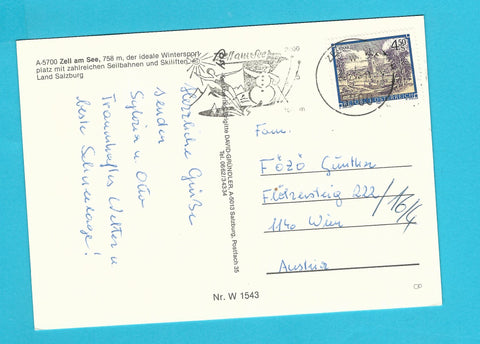 A-5700 Zell am See, 758 m, der ideale Wintersport-
platz mit zahlreichen Seilbahnen und Skiliften,
Land Salzburg
Herzliche Grüße
senden
Sylvia u. Otto
Traumhaftes Wetter u
beste Schneelage!
DAVID-GRÜNDLER, A-5013 Salzburg, Postfach 35
Tel. 06621/34334
Nr. W 1543
Zell am See
5700
4.50
REPUBLIK ÖSTERREICH
Fam.
FÖZÖ Günther
Flötzersteig 222/16/4
1140 Wien
Austria